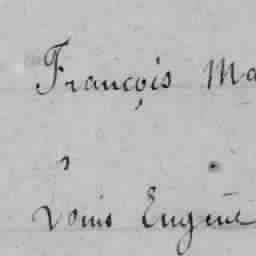 François Ma
Louis Eugène